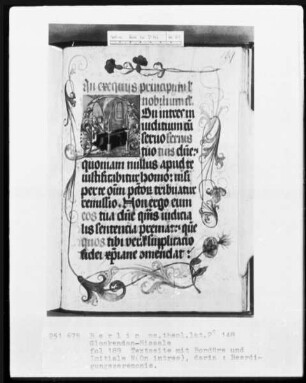 In exequiis principum l
nobilium il.
On intres in
iudicium cu
seruo
tuo dne:
quoniam nullus apud te
iustificabitur homo: nisi
per te oim pctor tribuatur
remissio. Non ergo eum
tua dne qms iudicia
lis sentencia premat: que
quos tibi ver supplicatio
fidei xpiane omendat:
251 671 Berlin ms.theol.lat.2° 148
Glockendon-Missale
fol 189 Textseite mit Bordüre und
Initiale N(On intres), darin : Beerdi-
gungszeremonie.